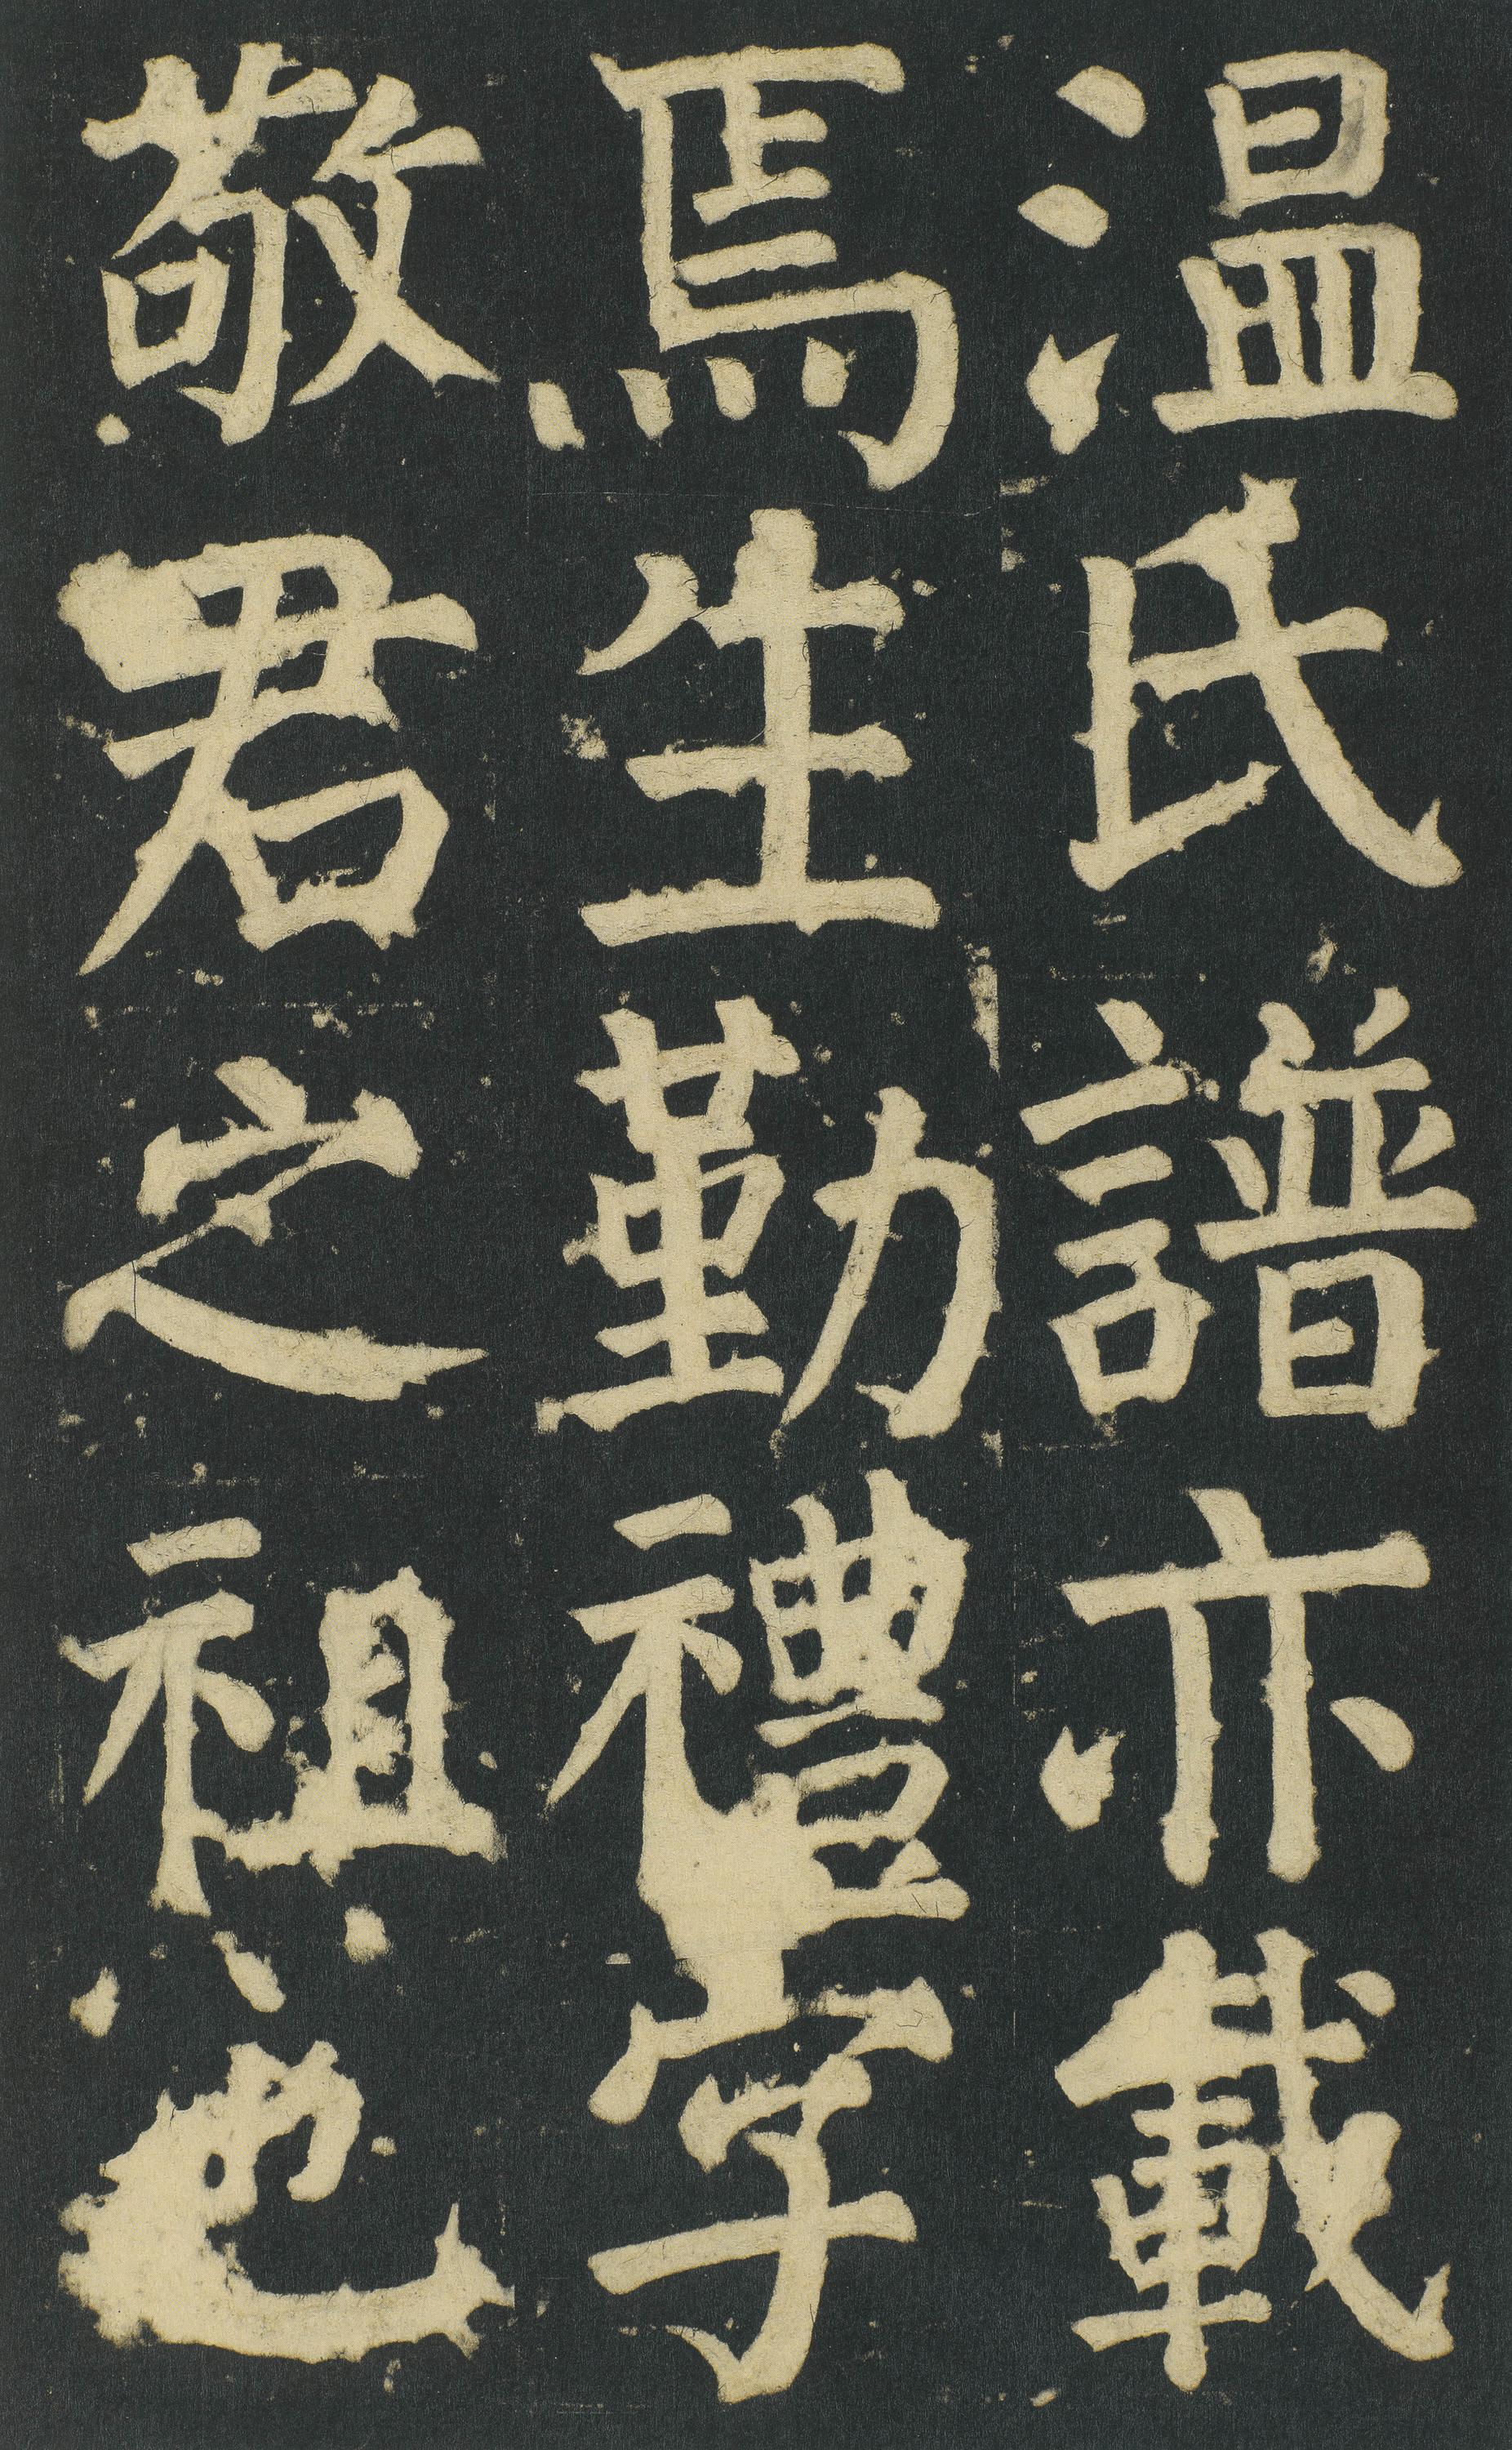 温氏譜亦載
焉生勤禮字
敬君之祖也